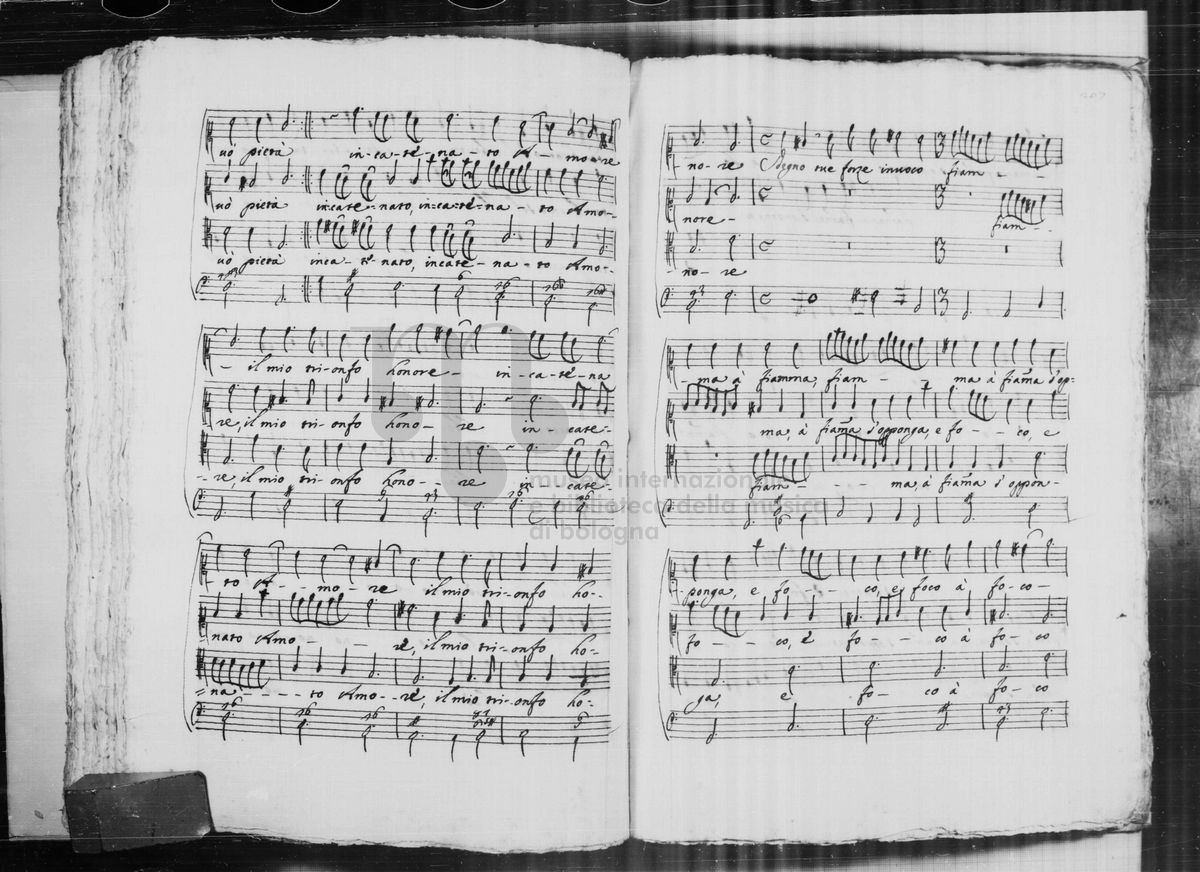 uò pietà in-ca-te-na-to A-mo-re
uò pietà incate-nato, in-ca-te-na-to Amo-
uò pietà inca-te-nato, incate-na-to Amo-
- il mio tri-onfo honore - in-ca-te-na
re, il mio tri-onfo hono-re in-cate-
-re, il mio tri-onfo hono--re in cate-
to A-mo-re il mio tri-onfo ho-
nato Amo--re, il mio tri-onfo ho-
=na----to Amo-re, il mio tri-onfo ho-
-no-re Sdegno tue forze invoco fiam--
nore- fiam--
-no-re
-ma à fiamma, fiam- ma à fiama s'op-
ma, à fiama s'opponga, e fo--co, e
fiam--- ma, à fiama s'oppon-
-ponga, e fo-co, e foco à fo-co-
fo--co, e fo--co à fo-co
ga, e fo-co à fo-co
museo internazionale
e biblioteca della musica
di bologna